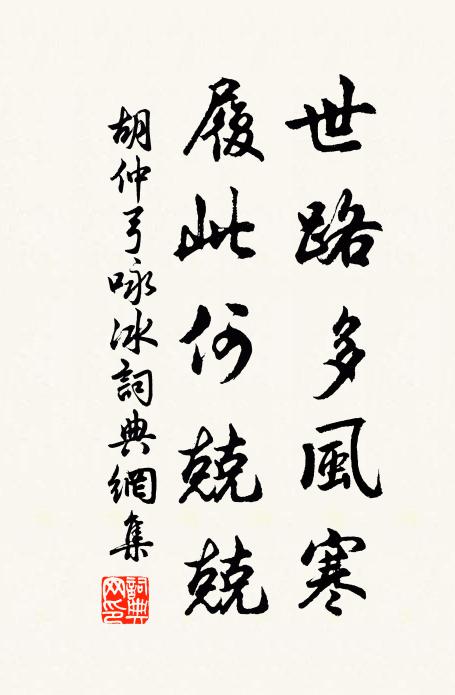 世路多風寒
履此何兢兢
胡仲弓咏冰詞典網集
詞典網印